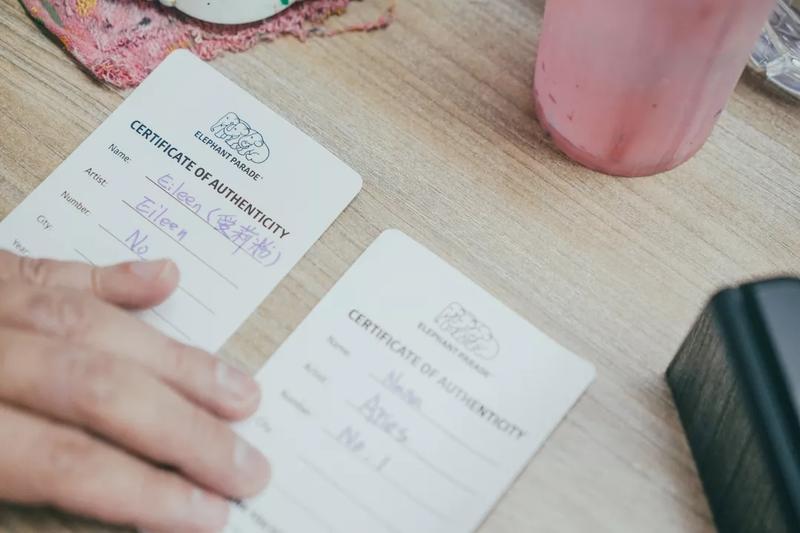 ELEPHANT PARADE
CERTIFICATE OF AUTHENTICITY
Name: Eileen (爱莉
Artist: Eileen
Number: No
City:
Year:
ELEPHANT PARADE
CERTIFICATE OF AUTHENTICITY
Name: Nana
Artist: Aries
Number: No. 1
City